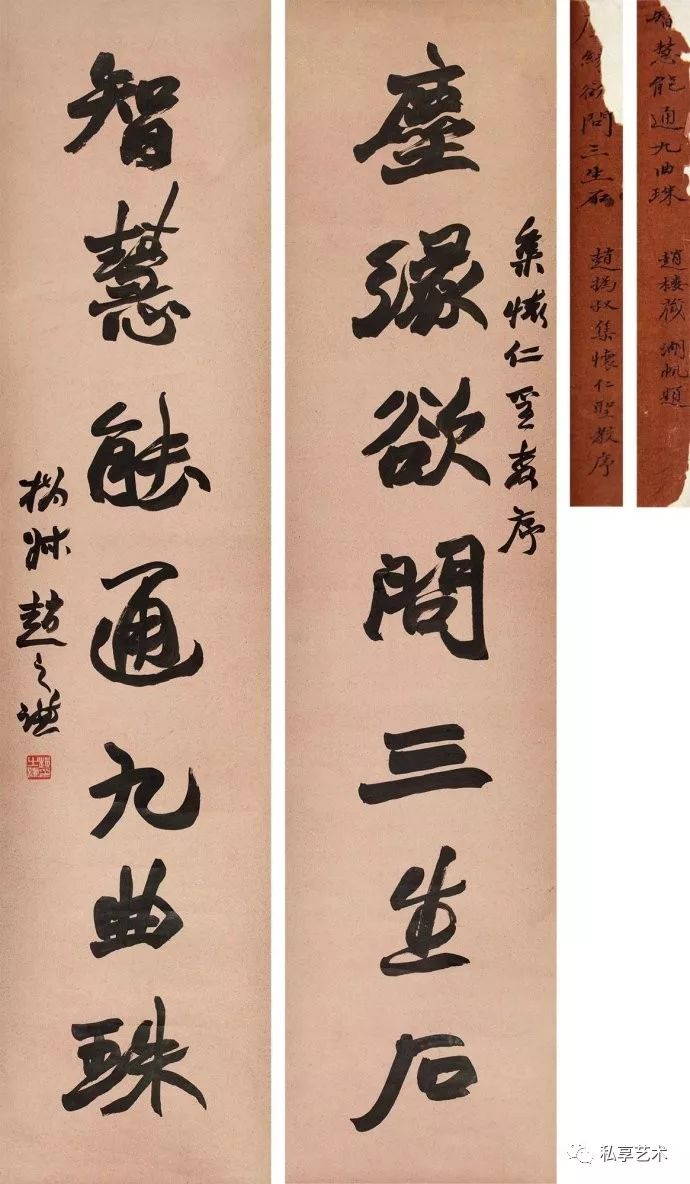 塵緣欲問三生石
集懷仁聖教序
智慧能通九曲珠
撝叔趙之謙
智慧能通九曲珠
趙樓 湖帆題
緣欲問三生石
趙撝叔集懷仁聖教序
私享艺术